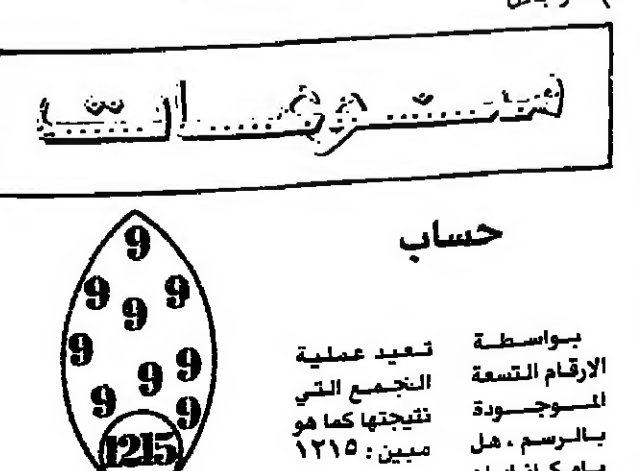 حساب
بواسطة
الارقام التسعة
الموجودة
بالرسم ، هل
تعيد عملية
التجمع التي
نتيجتها كما هو
مبين : ١٢١٥
9
9 9
9
9
9 9
9 9
1215